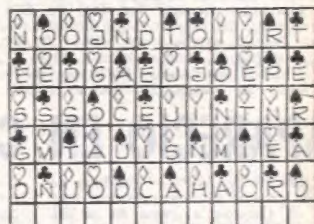 N O O J N D T O I U R T
E E D G A E U J O E P E
S S S O C E U I N T N R
G M T A U I S N M I E A
D N U O D C A H A O R D